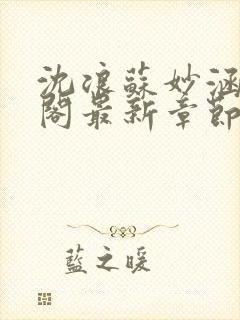 沈浪蘇妙涵
閣最新章節
藍之暖